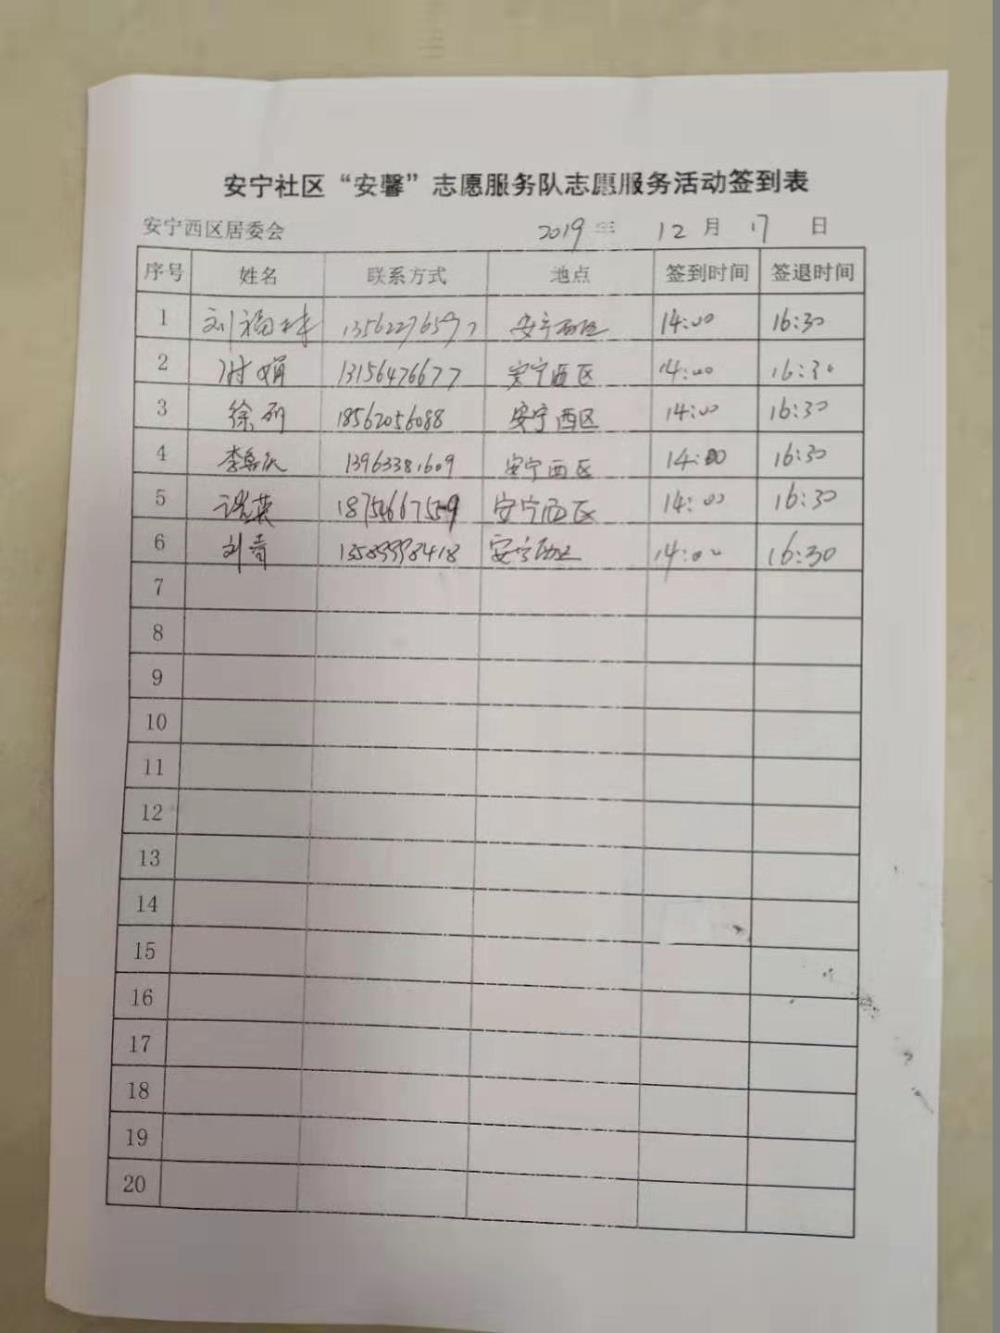 安宁社区“安馨”志愿服务队志愿服务活动签到表
安宁西区居委会 2019年 12月 17日
序号 姓名 联系方式 地点 签到时间 签退时间
1 刘福 安宁西区 14:00 16:30
2 13156476677 安宁西区 14:00 16:30
3 徐 18562056088 安宁西区 14:00 16:30
4 李 13963381609 安宁西区 14:00 16:30
5 英 安宁西区 14:00 16:30
6 刘青 安宁西区 14:00 16:30
7
8
9
10
11
12
13
14
15
16
17
18
19
20